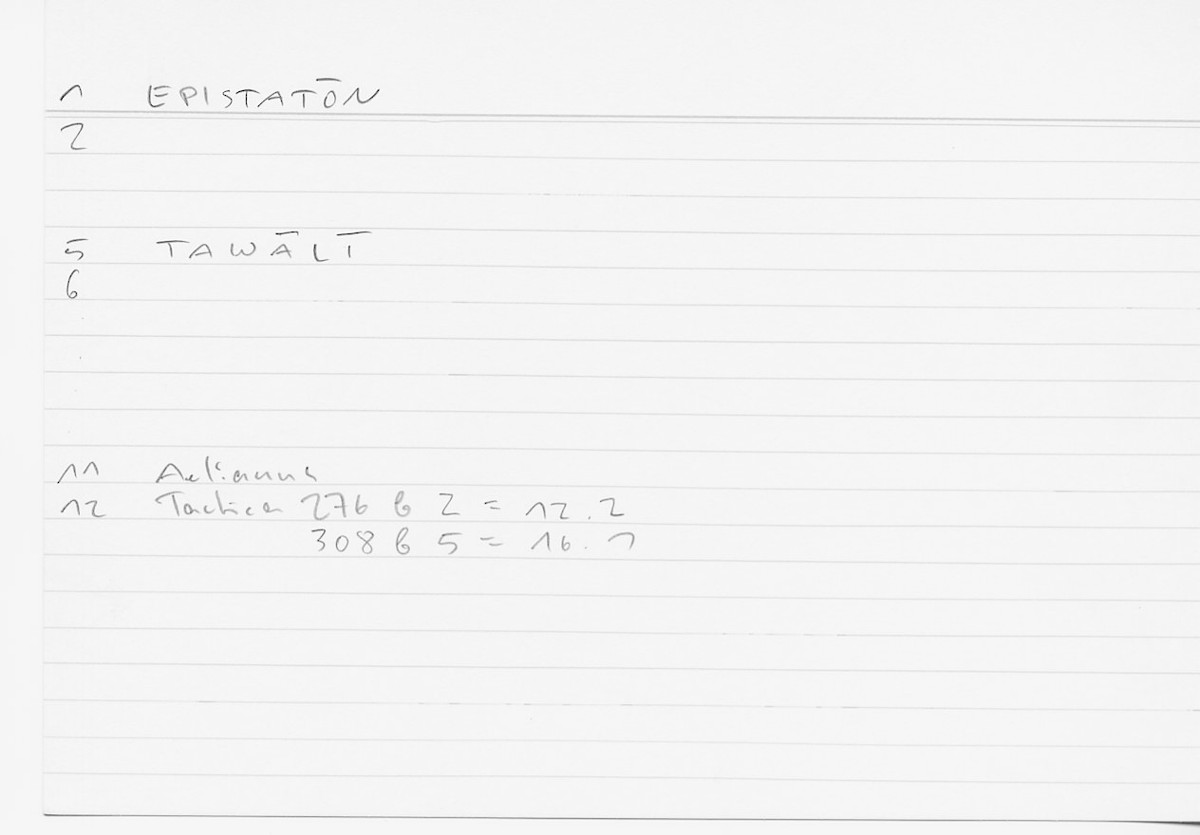 1 EPISTATŌN
2
5 TAWĀLĪ
6
11 Aelianus
12 Tactica 276 b 2 = 12.2
308 b 5 = 16.1